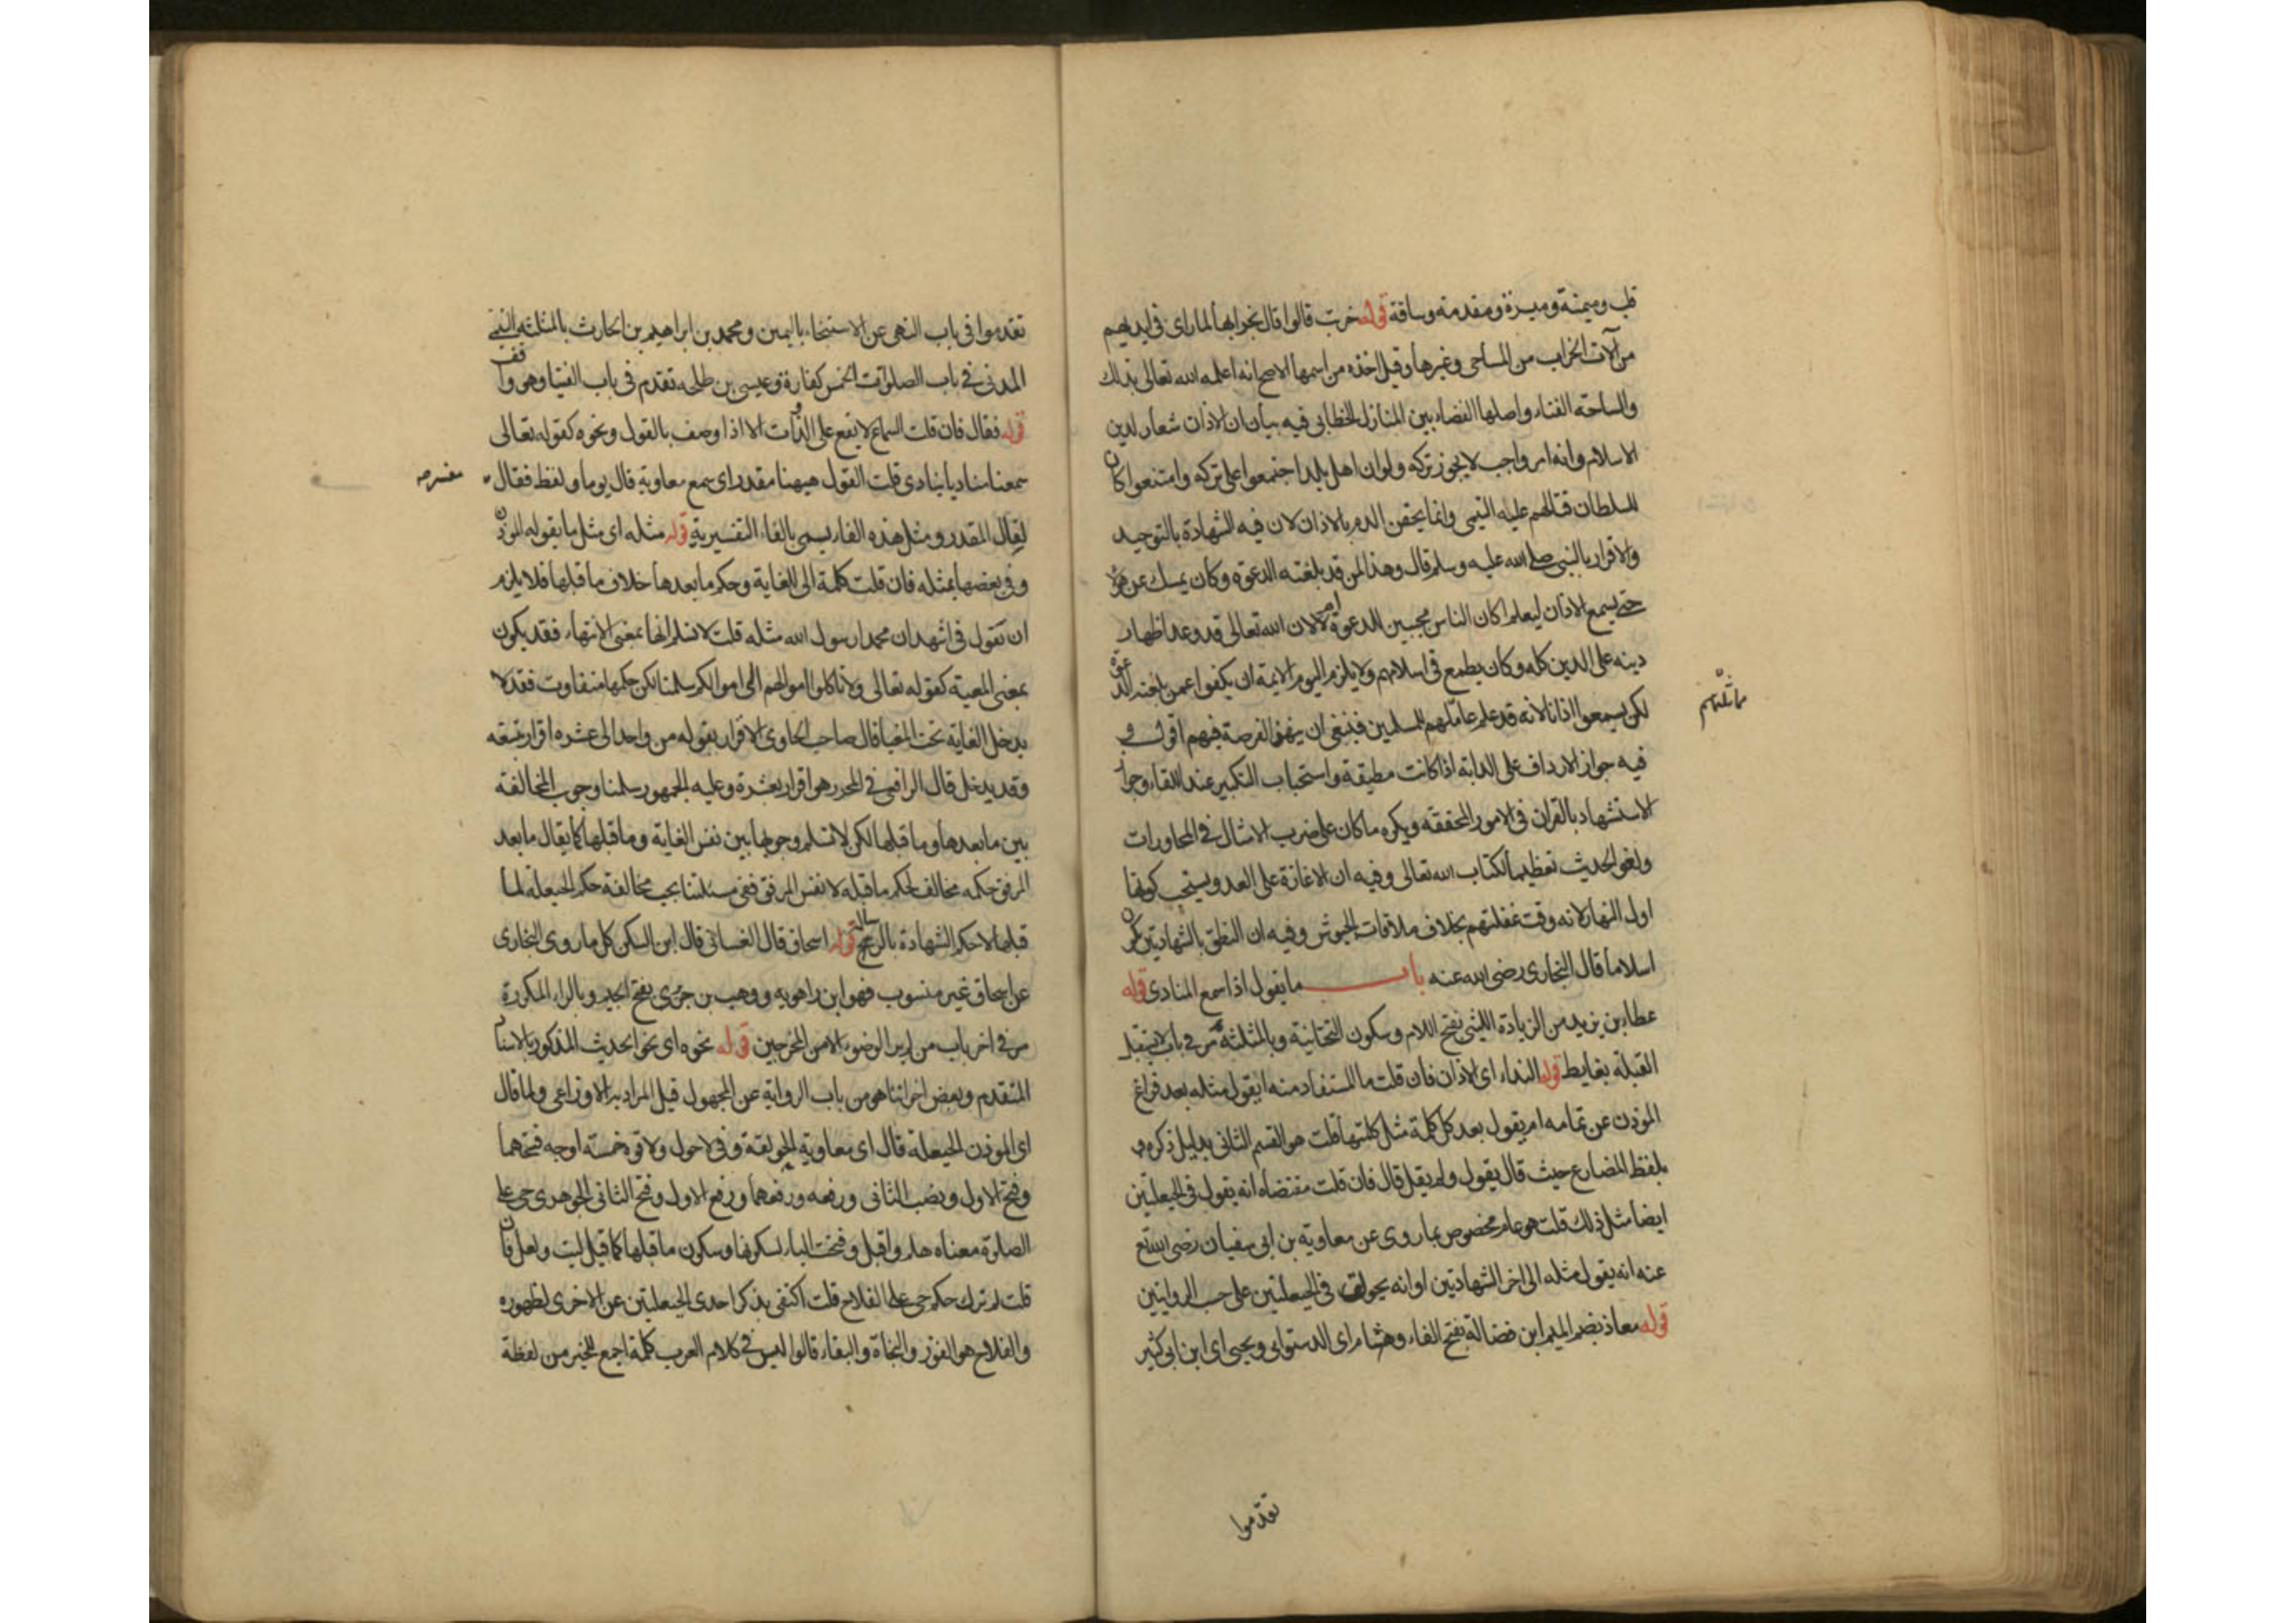 قلب وميمنة وميسرة ومقدمة وساقة قوله خربت قالوا قال بخرابها لما راى فى ايديهم
من آلات الخراب من المساحى وغيرها وقيل اخذه من اسمها الاصح انه اعلمه الله تعالى بذلك
والساحة الفناء واصلها الفضاء بين المنازل الخطابى فيه بيان ان الاذان شعار لدين
الاسلام وانه امر واجب لا يجوز تركه ولو ان اهل بلد اجتمعوا على تركه وامتنعوا كان
للسلطان قتالهم عليه التيمى وانما يحقن الدم بالاذان لان فيه الشهادة بالتوحيد
والاقرار بالنبى صلى الله عليه وسلم قال وهذا لمن قد بلغته الدعوة وكان يمسك عن هؤلاء
حتى يسمع الاذان ليعلم اكان الناس مجيبين للدعوة ام لا لان الله تعالى قد وعد اظهار
دينه على الدين كله وكان يطمع فى اسلامهم ولا يلزم اليوم الايمة ان يكفوا عمن بلغته الدعوة
لكن يسمعوا اذانا لانه قد علم عائلتهم للمسلمين فينبغى ان ينهز الفرصة فيهم اقول و
فيه جواز الارداف على الدابة اذا كانت مطيقة واستحباب التكبير عند اللقاء وجواز
الاستشهاد بالقران فى الامور المحققة ويكره ما كان على ضرب الامثال فى المحاورات
ولغو الحديث تعظيما لكتاب الله تعالى وفيه ان الاغارة على العدو يستحب كونها
اول النهار لانه وقت غفلتهم بخلاف ملاقات الجيوش وفيه ان النطق بالشهادتين يكون
اسلاما قال البخارى رضى الله عنه باب ما يقول اذا سمع المنادى قوله
عطا بن يزيد من الزيادة الليثى بفتح اللام وسكون التحتانية وبالمثلثة مر فى باب لا يستقبل
القبلة بغايط قوله النداء اى الاذان فان قلت ما المستفاد منه ايقول مثله بعد فراغ
الموذن عن تمامه ام يقول بعد كل كلمة مثل كلمتها قلت هو القسم الثانى بدليل ذكره
بلفظ المضارع حيث قال يقول ولم يقل قال فان قلت مقتضاه انه يقول فى الحيعلتين
ايضا مثل ذلك قلت هو عام مخصوص بما روى عن معاوية بن ابى سفيان رضى الله تع
عنه انه يقول مثله الى اخر الشهادتين او انه يحولق فى الحيعلتين على حسب الروايتين
قوله معاذ بضم الميم ابن فضالة بفتح الفاء وهشام اى الدستوايى ويحيى اى ابن ابى كثير
تقدموا
تقدموا فى باب النهى عن الاستنجاء باليمين ومحمد بن ابراهيم بن الحارث بالمثلثة التيمى
المدنى فى باب الصلوات الخمس كفارة وعيسى بن طلحه تقدم فى باب الفتيا وهو واقف
قوله فقال فان قلت السماع لا يقع على الذوات الا اذا وصف بالقول ونحوه كقوله تعالى
سمعنا مناديا ينادى قلت القول ههنا مقدر اى سمع معاوية قال يوما ولفظ فقال
مفسر
لقال المقدر ومثل هذه الفاء يسمى بالفاء التفسيرية قوله مثله اى مثل ما يقوله الموذن
وفى بعضها بمثله فان قلت كلمة الى للغاية وحكم ما بعدها خلاف ما قبلها فلا يلزم
ان تقول فى اشهد ان محمدا رسول الله مثله قلت لا نسلم انها بمعنى الانتهاء فقد يكون
بمعنى المعية كقوله تعالى ولا تاكلوا اموالهم الى اموالكم سلمنا لكن حكمها متفاوت فقد لا
يدخل الغاية تحت المغيا قال صاحب الحاوى الاقرار بقوله من واحد الى عشره اقرار بتسعه
وقد يدخل قال الرافعى فى المحرر هو اقرار بعشرة وعليه الجمهور سلمنا وجوب المخالفة
بين ما بعدها وما قبلها لكن لا نسلم وجوبها بين نفس الغاية وما قبلها كما يقال ما بعد
المرفق حكمه مخالف لحكم ما قبله لا نفس المرفق ففى مسئلتنا يجب مخالفة حكم الحيعلة لما
قبلها لا حكم الشهادة بالرسالة قوله اسحاق قال الغسانى قال ابن السكن كل ما روى البخارى
عن اسحاق غير منسوب فهو ابن راهويه ووهب بن جرير بفتح الجيم وبالراء المكررة
مر فى اخر باب من لم ير الوضوء الا من المخرجين قوله نحوه اى نحو الحديث المذكور بالاسناد
المتقدم وبعض اخواننا هو من باب الرواية عن المجهول قيل المراد به الاوزاعى ولما قال
اى الموذن الحيعلة قال اى معاوية الحولقة وفى لا حول ولا قوة خمسة اوجه فتحهما
وفتح الاول ونصب الثانى ورفعه ورفعهما ورفع الاول وفتح الثانى الجوهرى حى على
الصلوة معناه هلم واقبل وفتحت الياء لسكونها وسكون ما قبلها كما قيل ليت ولعل فان
قلت لم ترك حكم حى على الفلاح قلت اكتفى بذكر احدى الحيعلتين عن الاخرى لظهوره
والفلاح هو الفوز والنجاة والبقاء قالوا ليس فى كلام العرب كلمة اجمع للخير من لفظة